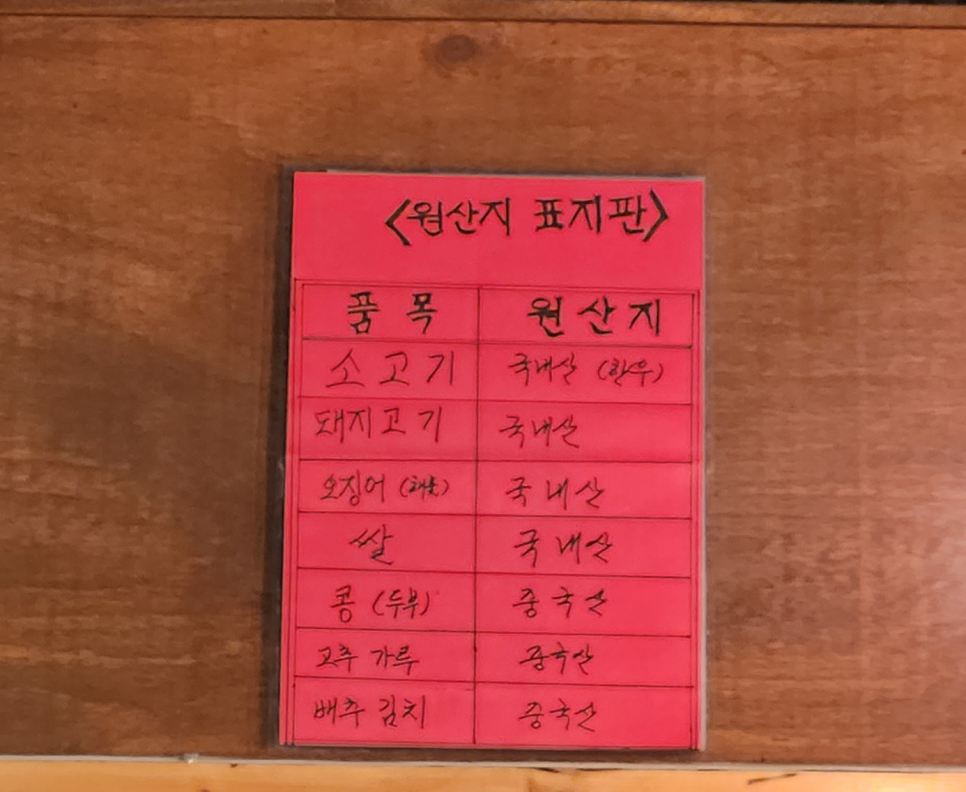 <원산지 표지판>
품목 원산지
소고기 국내산 (한우)
돼지고기 국내산
오징어 국내산
쌀 국내산
콩 (두부) 중국산
고추 가루 중국산
배추 김치 중국산